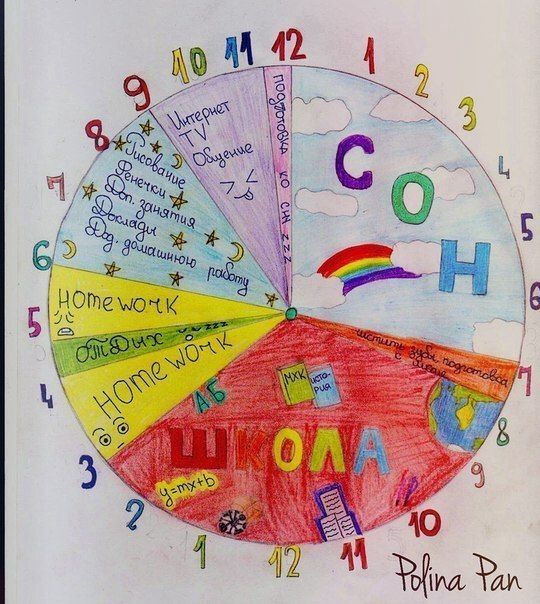 12
1
2
3
4
5
6
7
8
9
10
11
12
1
2
3
4
5
6
7
8
9
10
11
СОН
чистить зубы, подготовка
ШКОЛА
МХК
исто-
рия
АБ
y=mx+b
HOMEWORK
ОТДЫХ zzz
HOMEWORK
Рисование
Фенечки
Доп. занятия
Доклады
Дод. домашнюю работу
Интернет
TV
Общение
ПОДГОТОВКА КО СН zzz
Polina Pan